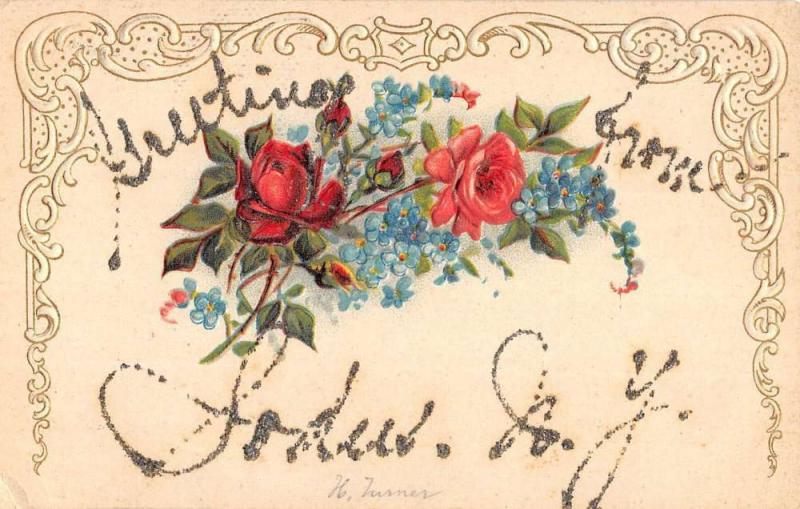 Greetings from
N. Y.
H. Turner